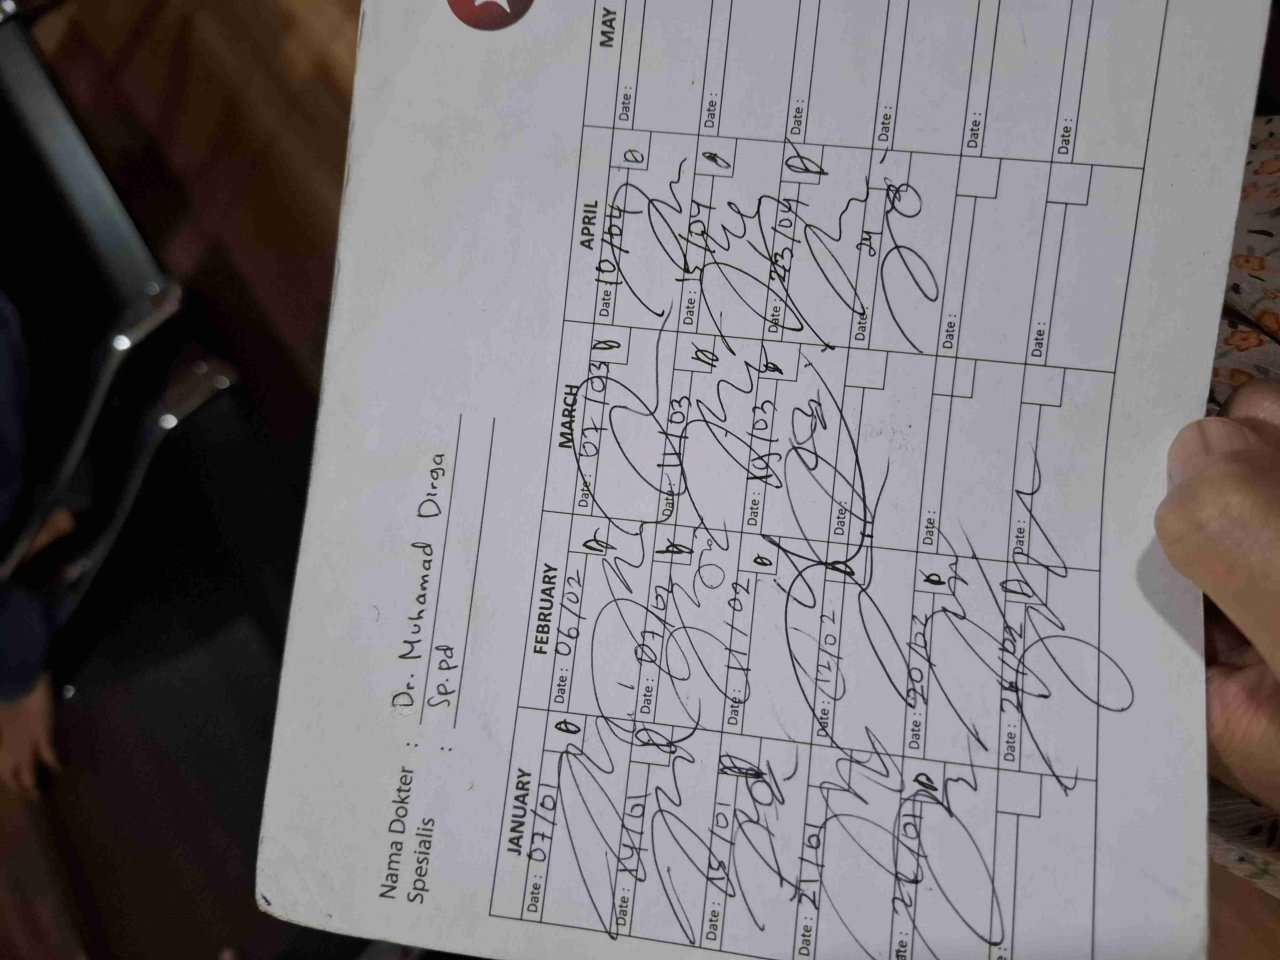 Nama Dokter : Dr. Muhamad Dirga
Spesialis : Sp.pd
JANUARY FEBRUARY MARCH APRIL MAY
Date: 07/01 D Date: 06/02 D Date: 07/03 D Date: 10/04 D Date:
Date: 14/01 D Date: 07/02 D Date: 11/03 D Date: 15/04 D Date:
Date: 15/01 D Date: 11/02 D Date: 19/03 D Date: 23/04 D Date:
Date: 21/01 Date: 12/02 D Date: Date: 24 Date:
Date: 22/01 D Date: 20/02 D Date: Date: Date:
Date: Date: Date: Date: